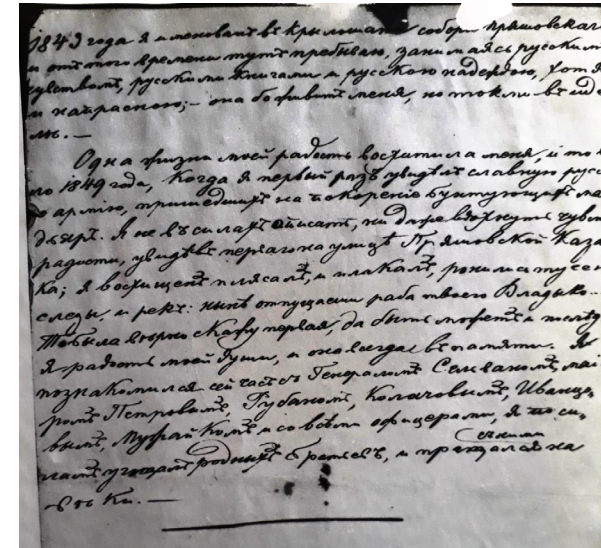 1843 года я именованъ въ крылошане собора пряшовскаго
и отъ того времени тутъ пребываю, занимаясь русскимъ
чувствомъ, русскими книгами и русскою надеждою, хотя
и напрасною; — она боживитъ меня, но токли въ идѣ
лю. —
Одна жизни моей радость восхитила меня, и то
1849 года, когда я первый разъ увидѣлъ славную русс
армію, пришедшую на покореніе бунтующихъ ма
дьяръ. Я не въ силахъ описать, ни даже вдохнуть чувс
радости, увидѣвъ перваго на улицѣ Пряшовской Каза
ка; я восхищенъ плясалъ, и плакалъ, ронились
слезы, и рекъ: нынѣ отпущаеши раба твоего Владыко.
То была вѣрно скажу первая, да быть можетъ и послѣд
я радость моей души, и оно всегда въ памяти. Я
познакомился сейчасъ съ Генераломъ Сельваномъ, маі
ромъ Петровымъ, Губаномъ, Колачовымъ, Иванцо
вымъ, и со всѣми офицерами, я по си
ламъ угощалъ родныхъ братьевъ, и прещался съ ними на
вѣки. —